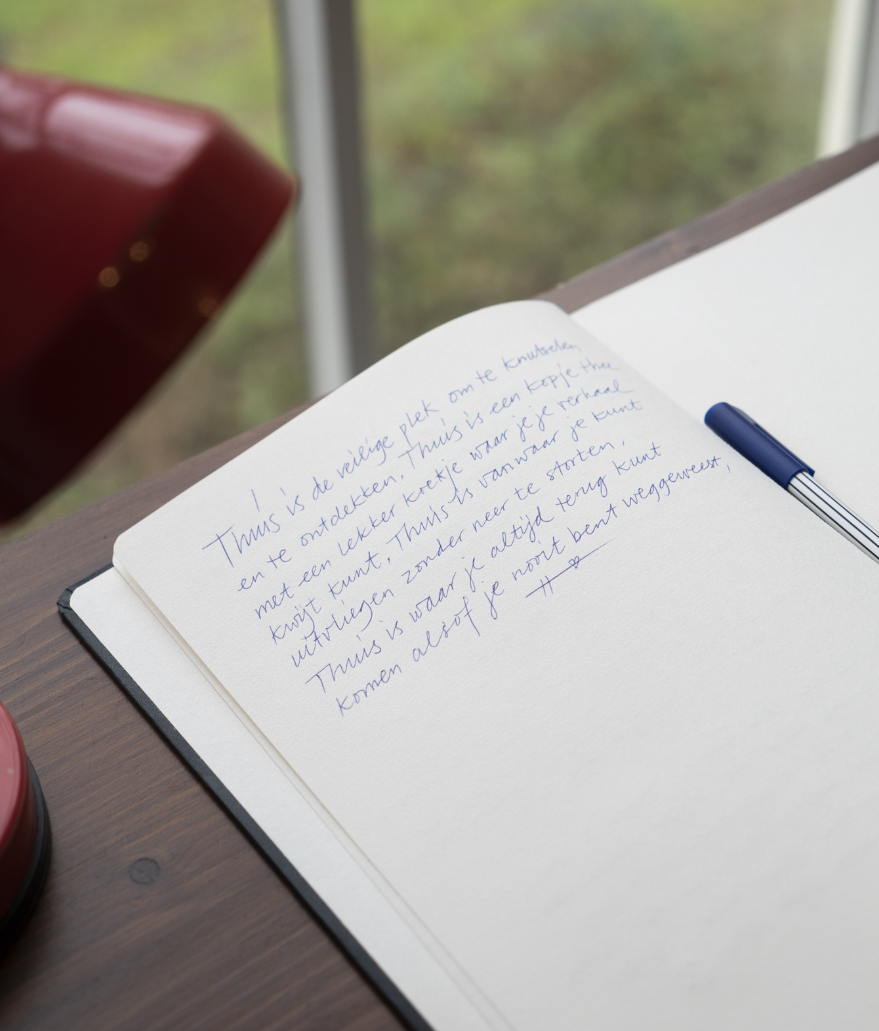 Thuis is de veilige plek om te knutselen
en te ontdekken. Thuis is een kopje thee
met een lekker koekje waar je je verhaal
kwijt kunt. Thuis is van waar je kunt
uitvliegen zonder neer te storten.
Thuis is waar je altijd terug kunt
komen alsof je nooit bent weggeweest.